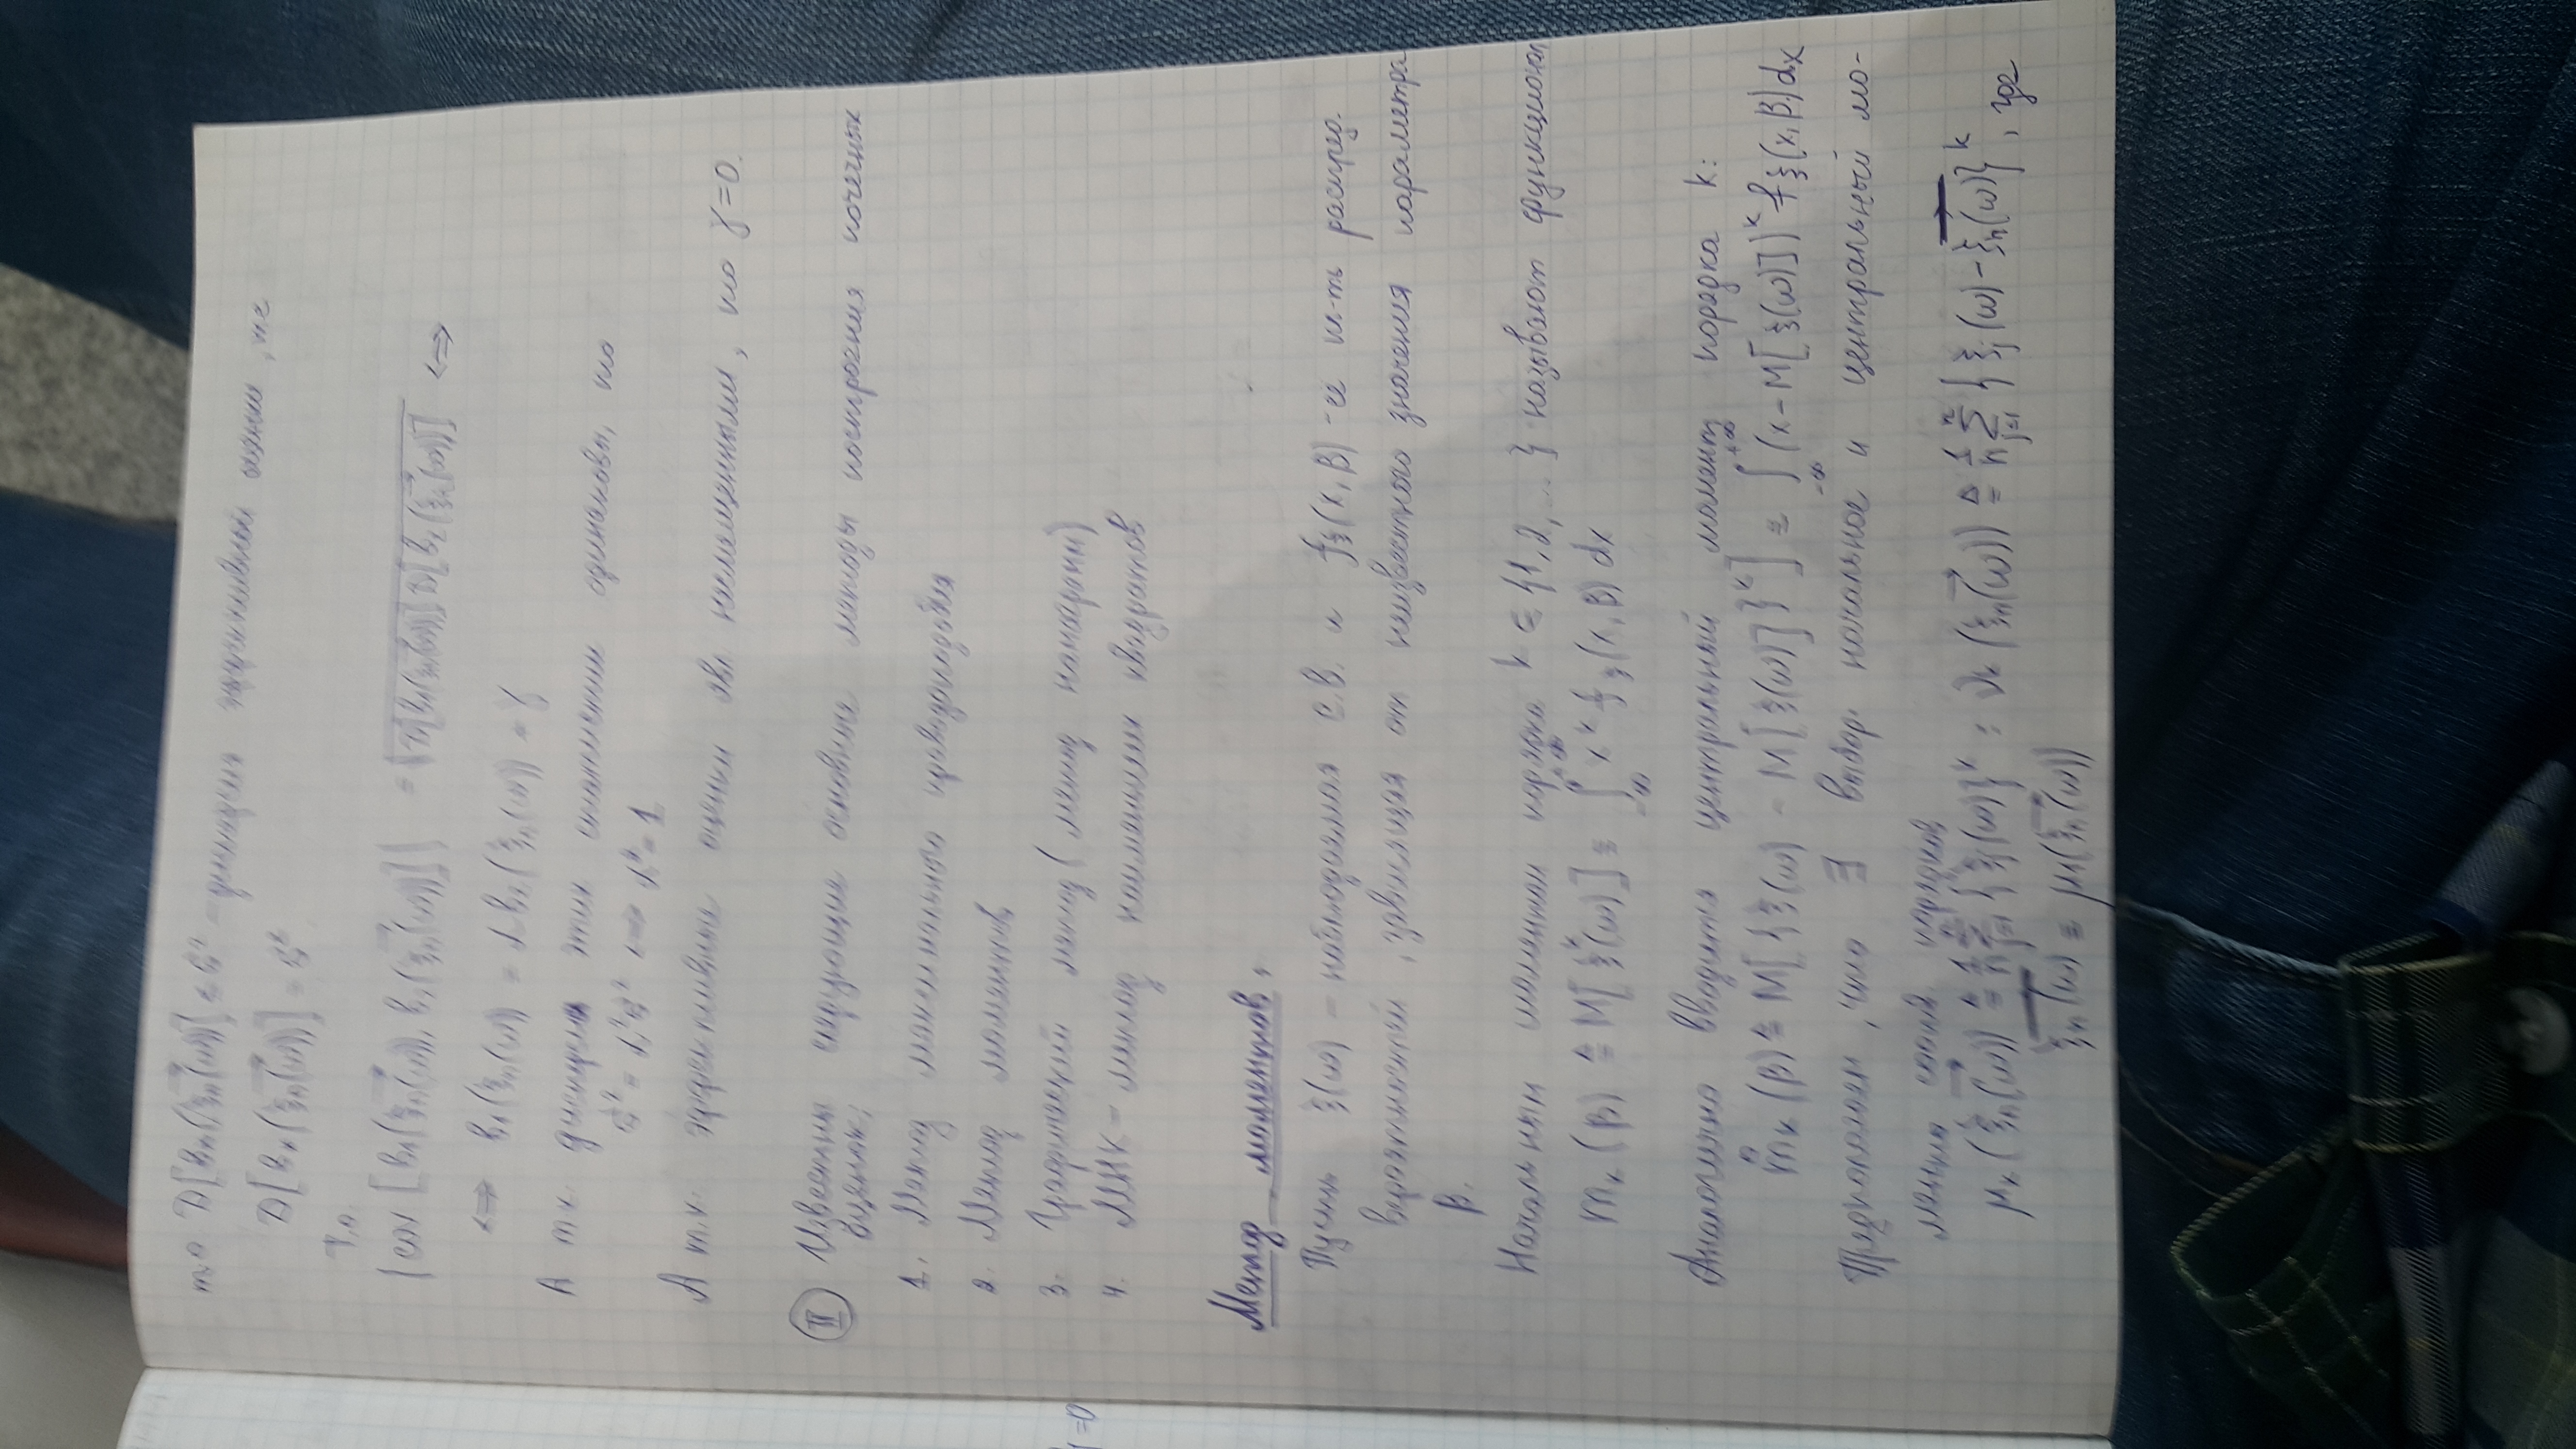 то D[b₂(ξₙ(ω))] ≤ σ² – дисперсия эффективной оценки, т.е.
D[b₁(ξₙ(ω))] = σ²
Т.о.
|cov [b₁(ξₙ(ω)), b₂(ξₙ(ω))]| = √(D[b₁(ξₙ(ω))] D[b₂(ξₙ(ω))]) ⟺
⟺ b₁(ξₙ(ω)) = α b₂(ξₙ(ω)) + γ
А т.к. дисперсии этих оценок одинаковы, то
σ² = α²σ² ⟺ α² = 1
А т.к. эффективные оценки явл. несмещенными, то γ = 0.
II Известны следующие основные методы построения точечных
оценок:
1. Метод максимального правдоподобия
2. Метод моментов
3. Графический метод (метод номограмм)
4. МНК – метод наименьших квадратов
Метод моментов.
Пусть ξ(ω) – наблюдаемая с.в. и f_ξ(x, β) – её пл-ть распред.
вероятностей, зависящая от неизвестного значения параметра
β.
Начальным моментом порядка k ∈ {1, 2, ...} называют функционал
mₖ(β) ≜ M[ξᵏ(ω)] = ∫₋∞^+∞ xᵏ f_ξ(x, β) dx
Аналогично вводится центральный момент порядка k:
m̊ₖ(β) ≜ M[{ξ(ω) - M[ξ(ω)]}ᵏ] = ∫₋∞^+∞ (x - M[ξ(ω)])ᵏ f_ξ(x, β) dx
Предположим, что ∃ выбор. начальное и центральный мо-
менты соотв. порядков
μₖ(ξₙ(ω)) ≜ 1/n Σⱼ₌₁ⁿ {ξⱼ(ω)}ᵏ ; νₖ(ξₙ(ω)) ≜ 1/n Σⱼ₌₁ⁿ {ξⱼ(ω) - ξₙ(ω)}ᵏ, где
ξₙ(ω) = μ₁(ξₙ(ω))